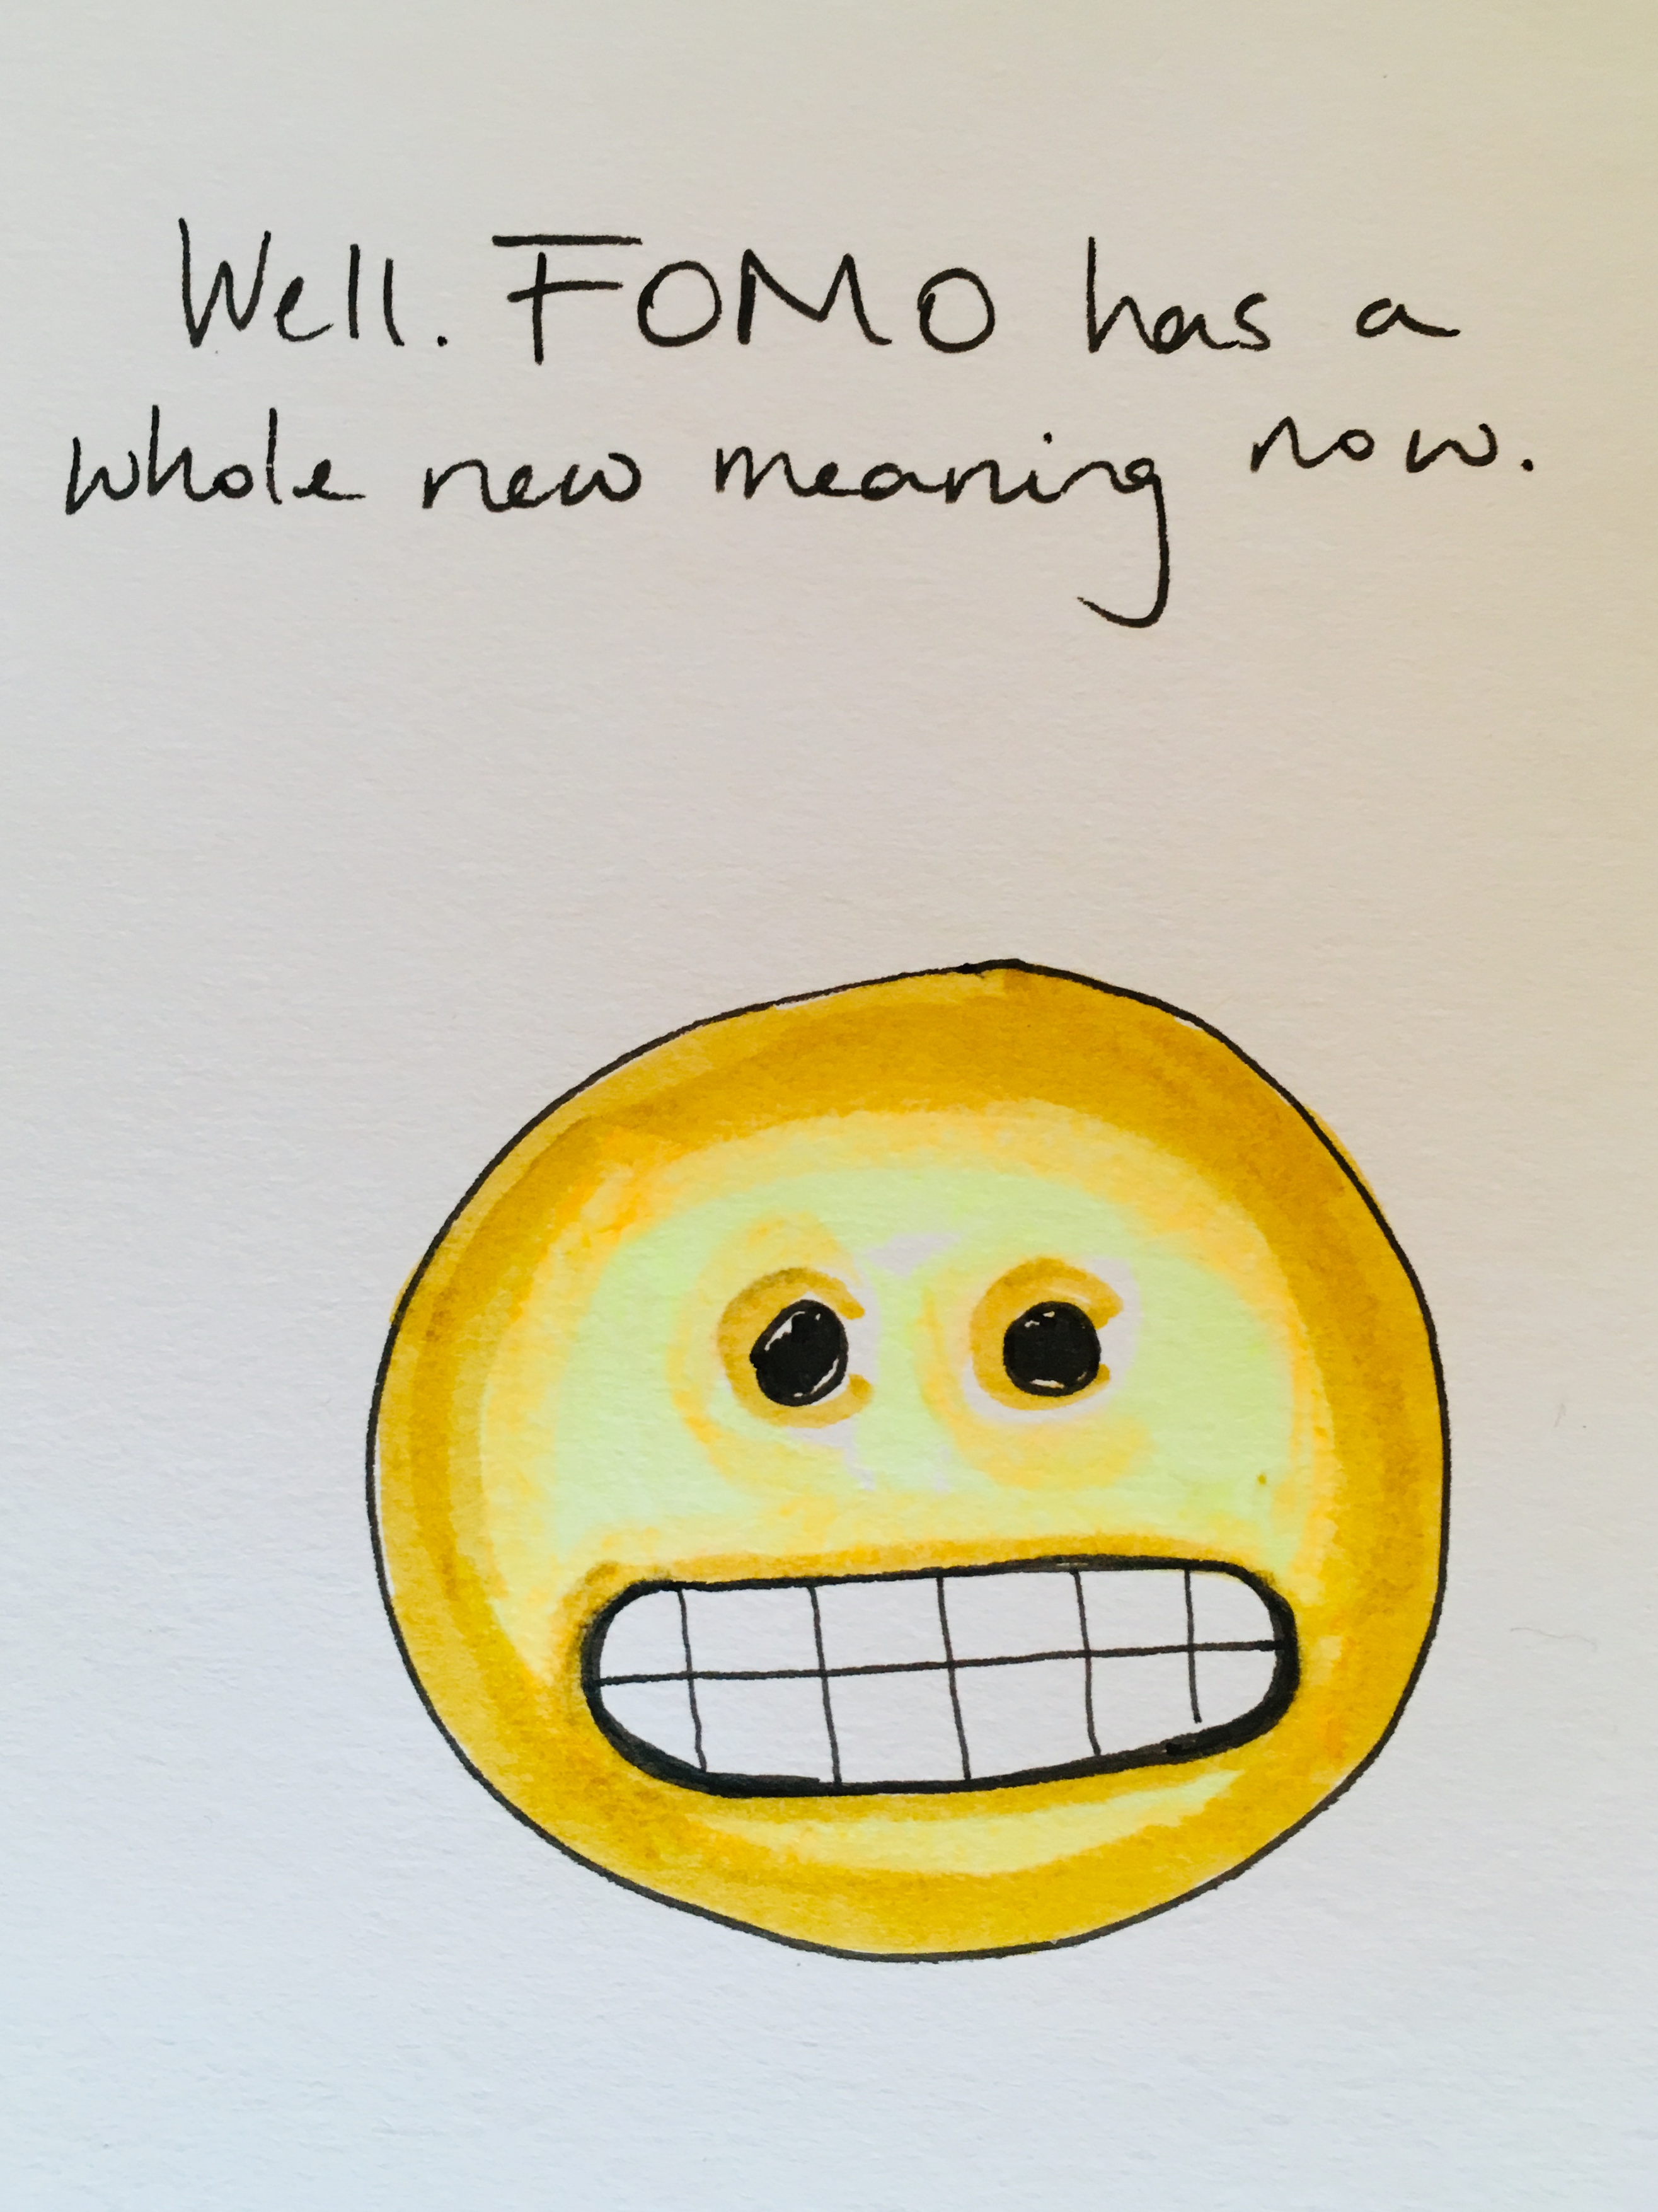 Well. FOMO has a
whole new meaning now.